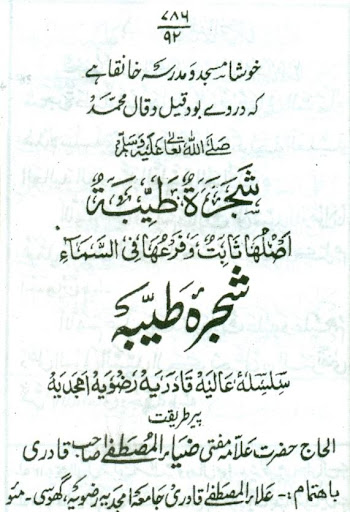 ۷۸۶
۹۲
خوشا مسجد و مدرسہ خانقاہے
کہ دروے بود قیل و قال محمد
صَلَّی اللہُ تَعَالٰی عَلَیْہِ وَسَلَّم
شَجَرَۃٌ طَیِّبَۃٌ
اَصْلُہَا ثَابِتٌ وَّفَرْعُہَا فِی السَّمَآءِ
شجرۂ طیّبہ
سلسلۂ عالیہ قادریہ رضویہ امجدیہ
پیر طریقت
الحاج حضرت علامہ مفتی ضیاء المصطفےٰ صاحب قادری
باہتمام :- علاء المصطفےٰ قادری جامعہ امجدیہ رضویہ، گھوسی - مئو